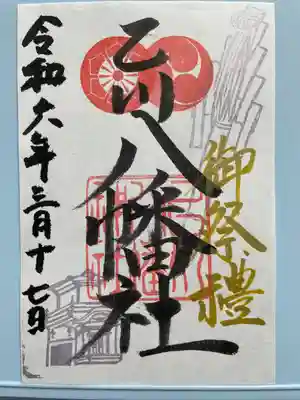 御祭禮
乙川八幡社
令和六年三月十七日